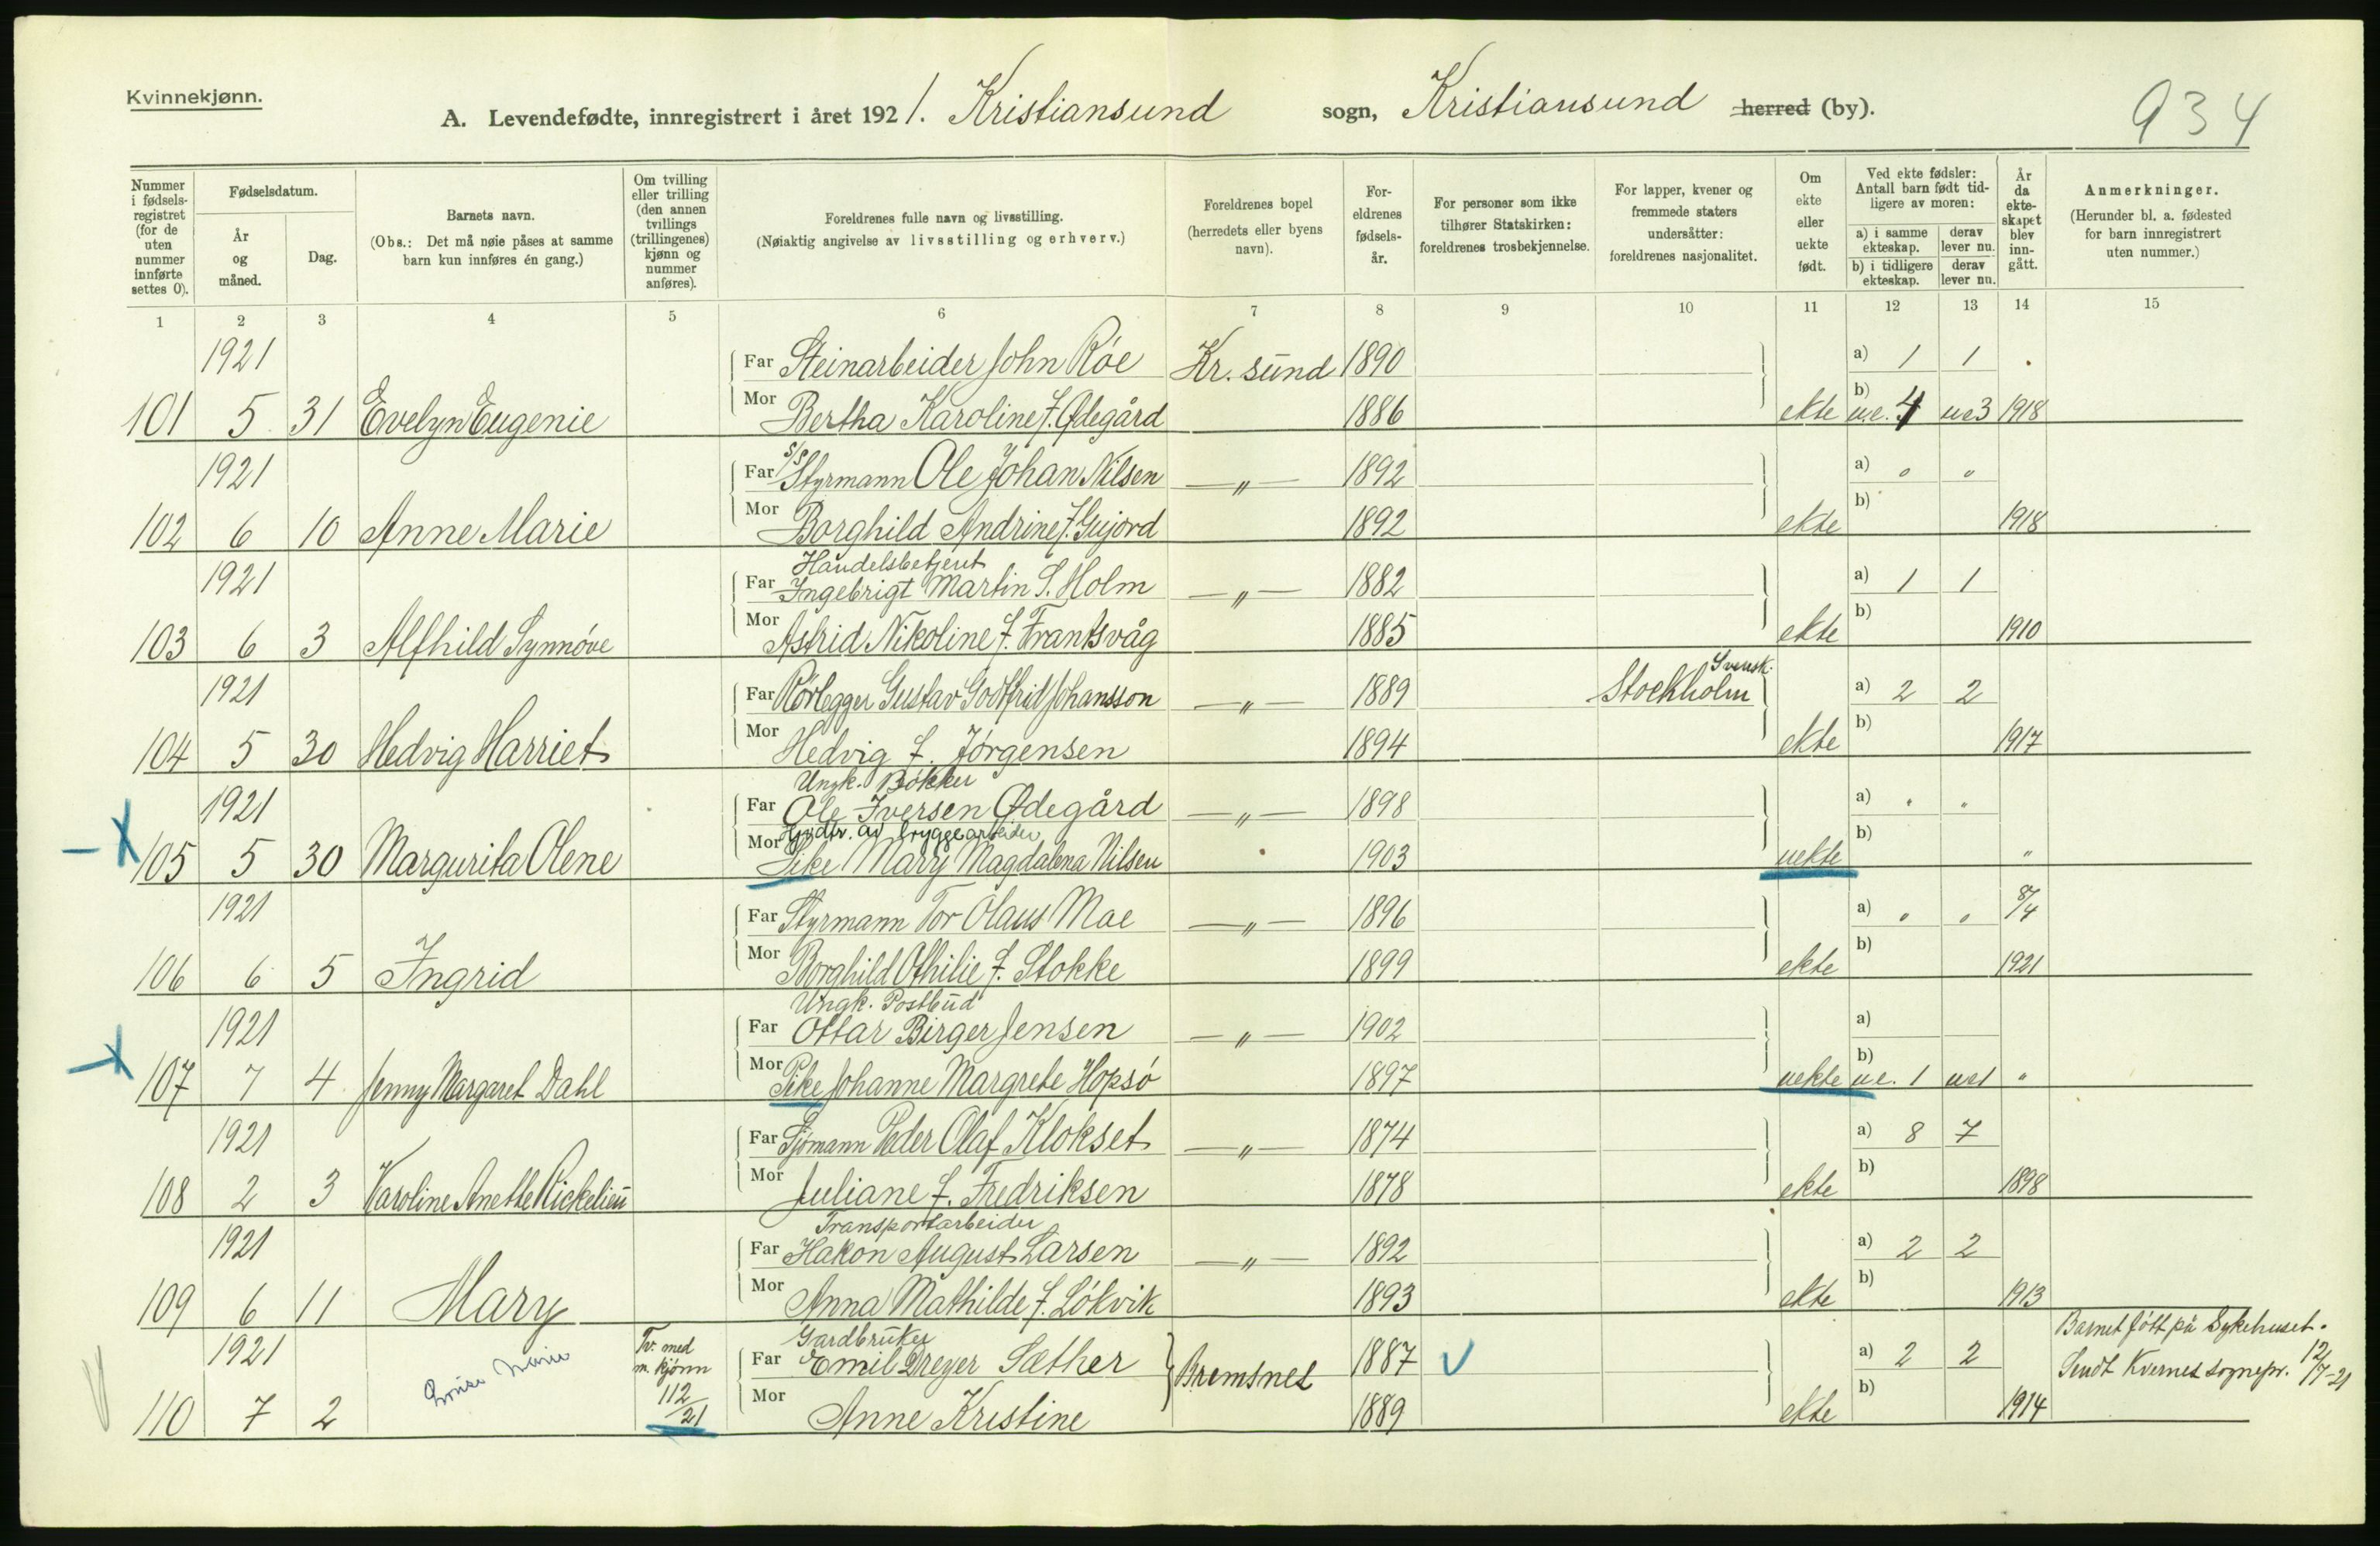 Kvinnekjønn.
A. Levendefødte, innregistrert i året 1921. Kristiansund sogn, Kristiansund herred (by).
934
Nummer i fødsels-registret (for de uten nummer innførte settes 0).
Fødselsdatum.
År og måned.
Dag.
Barnets navn.
(Obs.: Det må nøie påses at samme barn kun innføres én gang.)
Om tvilling eller trilling (den annen tvillings (trillingenes) kjønn og nummer anføres).
Foreldrenes fulle navn og livsstilling.
(Nøiaktig angivelse av livsstilling og erhverv.)
Foreldrenes bopel (herredets eller byens navn).
For-eldrenes fødsels-år.
For personer som ikke tilhører Statskirken: foreldrenes trosbekjennelse.
For lapper, kvener og fremmede staters undersåtter: foreldrenes nasjonalitet.
Om ekte eller uekte født.
Ved ekte fødsler: Antall barn født tid-ligere av moren:
a) i samme ekteskap. derav lever nu.
b) i tidligere ekteskap. derav lever nu.
År da ekte-skapet blev inn-gått.
Anmerkninger.
(Herunder bl. a. fødested for barn innregistrert uten nummer.)
1 2 3 4 5 6 7 8 9 10 11 12 13 14 15
1921 Far Steinarbeider John Røe Kr. sund 1890 a) 1 1
101 5 31 Evelyn Eugenie Mor Bertha Karoline f. Ødegård 1886 ekte b) u.e. 4 ue 3 1918
1921 Far S/S Styrmann Ole Johan Nilsen — „ — 1892 a) " "
102 6 10 Anne Marie Mor Borghild Andrine f. Gujord 1892 ekte b) 1918
Handelsbetjent
1921 Far Ingebrigt Martin S. Holm — „ — 1882 a) 1 1
103 6 3 Alfhild Synnøve Mor Astrid Nikoline f. Frantsvåg 1885 ekte b) 1910
Svensk.
1921 Far Rørlegger Gustav Gottfrid Johansson — „ — 1889 Stockholm a) 2 2
104 5 30 Hedvig Harriet Mor Hedvig f. Jørgensen 1894 ekte b) 1917
Ungk. Bøkker
1921 Far Ole Iversen Ødegård — „ — 1898 a) " "
av bryggearbeider
105 5 30 Margurita Olene Mor Pike Mary Magdalena Nilsen 1903 uekte b) "
1921 Far Styrmann Tor Olaus Moe — „ — 1896 a) " " 8/4
106 6 5 Ingrid Mor Borghild Othilie f. Stokke 1899 ekte b) 1921
Ungk. Postbud
1921 Far Ottar Birger Jensen — „ — 1902 a)
107 7 4 Jenny Margaret Dahl Mor Pike Johanne Margrete Hopsø 1897 uekte b) u.e. 1 ue 1 "
1921 Far Sjømann Peder Olaf Klokset — „ — 1874 a) 8 7
108 2 3 Karoline Anette Rickelieu Mor Juliane f. Fredriksen 1878 ekte b) 1898
Transportarbeider
1921 Far Hakon August Larsen — „ — 1892 a) 2 2
109 6 11 Mary Mor Anna Mathilde f. Løkvik 1893 ekte b) 1913
Gardbruker
1921 Tv. med m. kjønn 112/21 Far Emil Dreyer Sæther Bremsnes 1887 a) 2 2 Barnet født på Sykehuset.
110 7 2 Louise Marie Mor Anne Kristine 1889 ekte b) 1914 Sendt Kvernes sognepr. 12/7-21